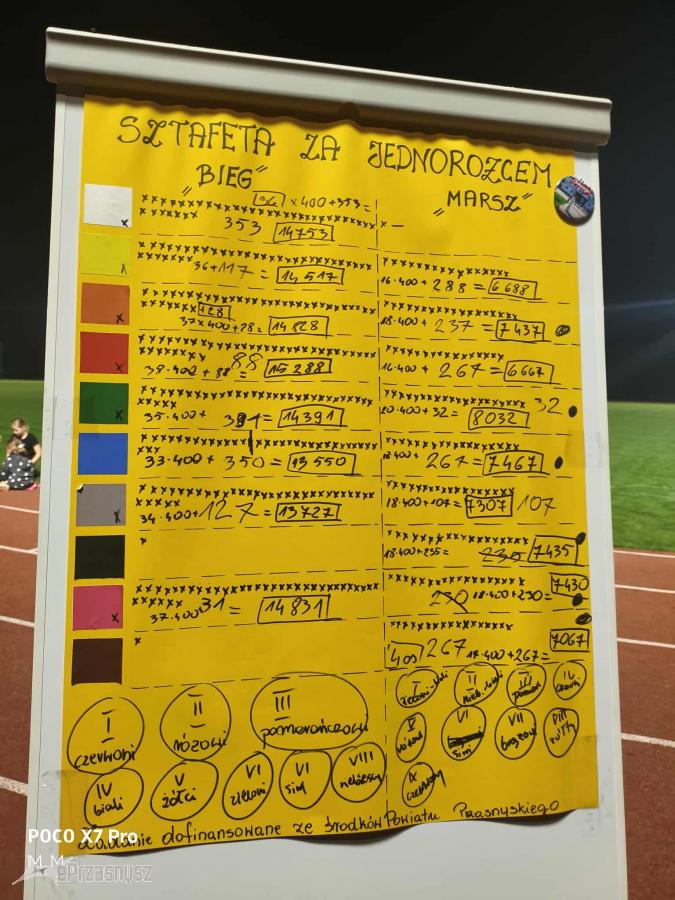 SZTAFETA ZA JEDNOROŻCEM
„BIEG” „MARSZ”
36 × 400 + 353 =
353 14753
36 + 117 = 14 517
16·400 + 288 = 6 688
+28
37 × 400 + 28 = 14 828
18·400 + 237 = 7 437
88
38·400 + 88 = 15 288
16·400 + 267 = 6667
35·400 + 391 = 14391
20·400 + 32 = 8032 32
33·400 + 350 = 13 550
18·400 + 267 = 7467
34·400 + 127 = 13727
18·400 + 107 = 7307 107
18·400 + 235 = 235 7435
230 18·400 + 230 = 7430
37·400 31 = 14 831
267 17·400 + 267 = 7067
I czerwoni
II różowi
III pomarańczowi
IV biali
V żółci
VI zieloni
VI sini
VIII niebiescy
I
II
III
IV czarni
V
VI sini
VII brązowi
VIII żółty
IX czerwony
Zadanie dofinansowane ze środków Powiatu Przasnyskiego
POCO X7 Pro
M_M
ePrzasnysz